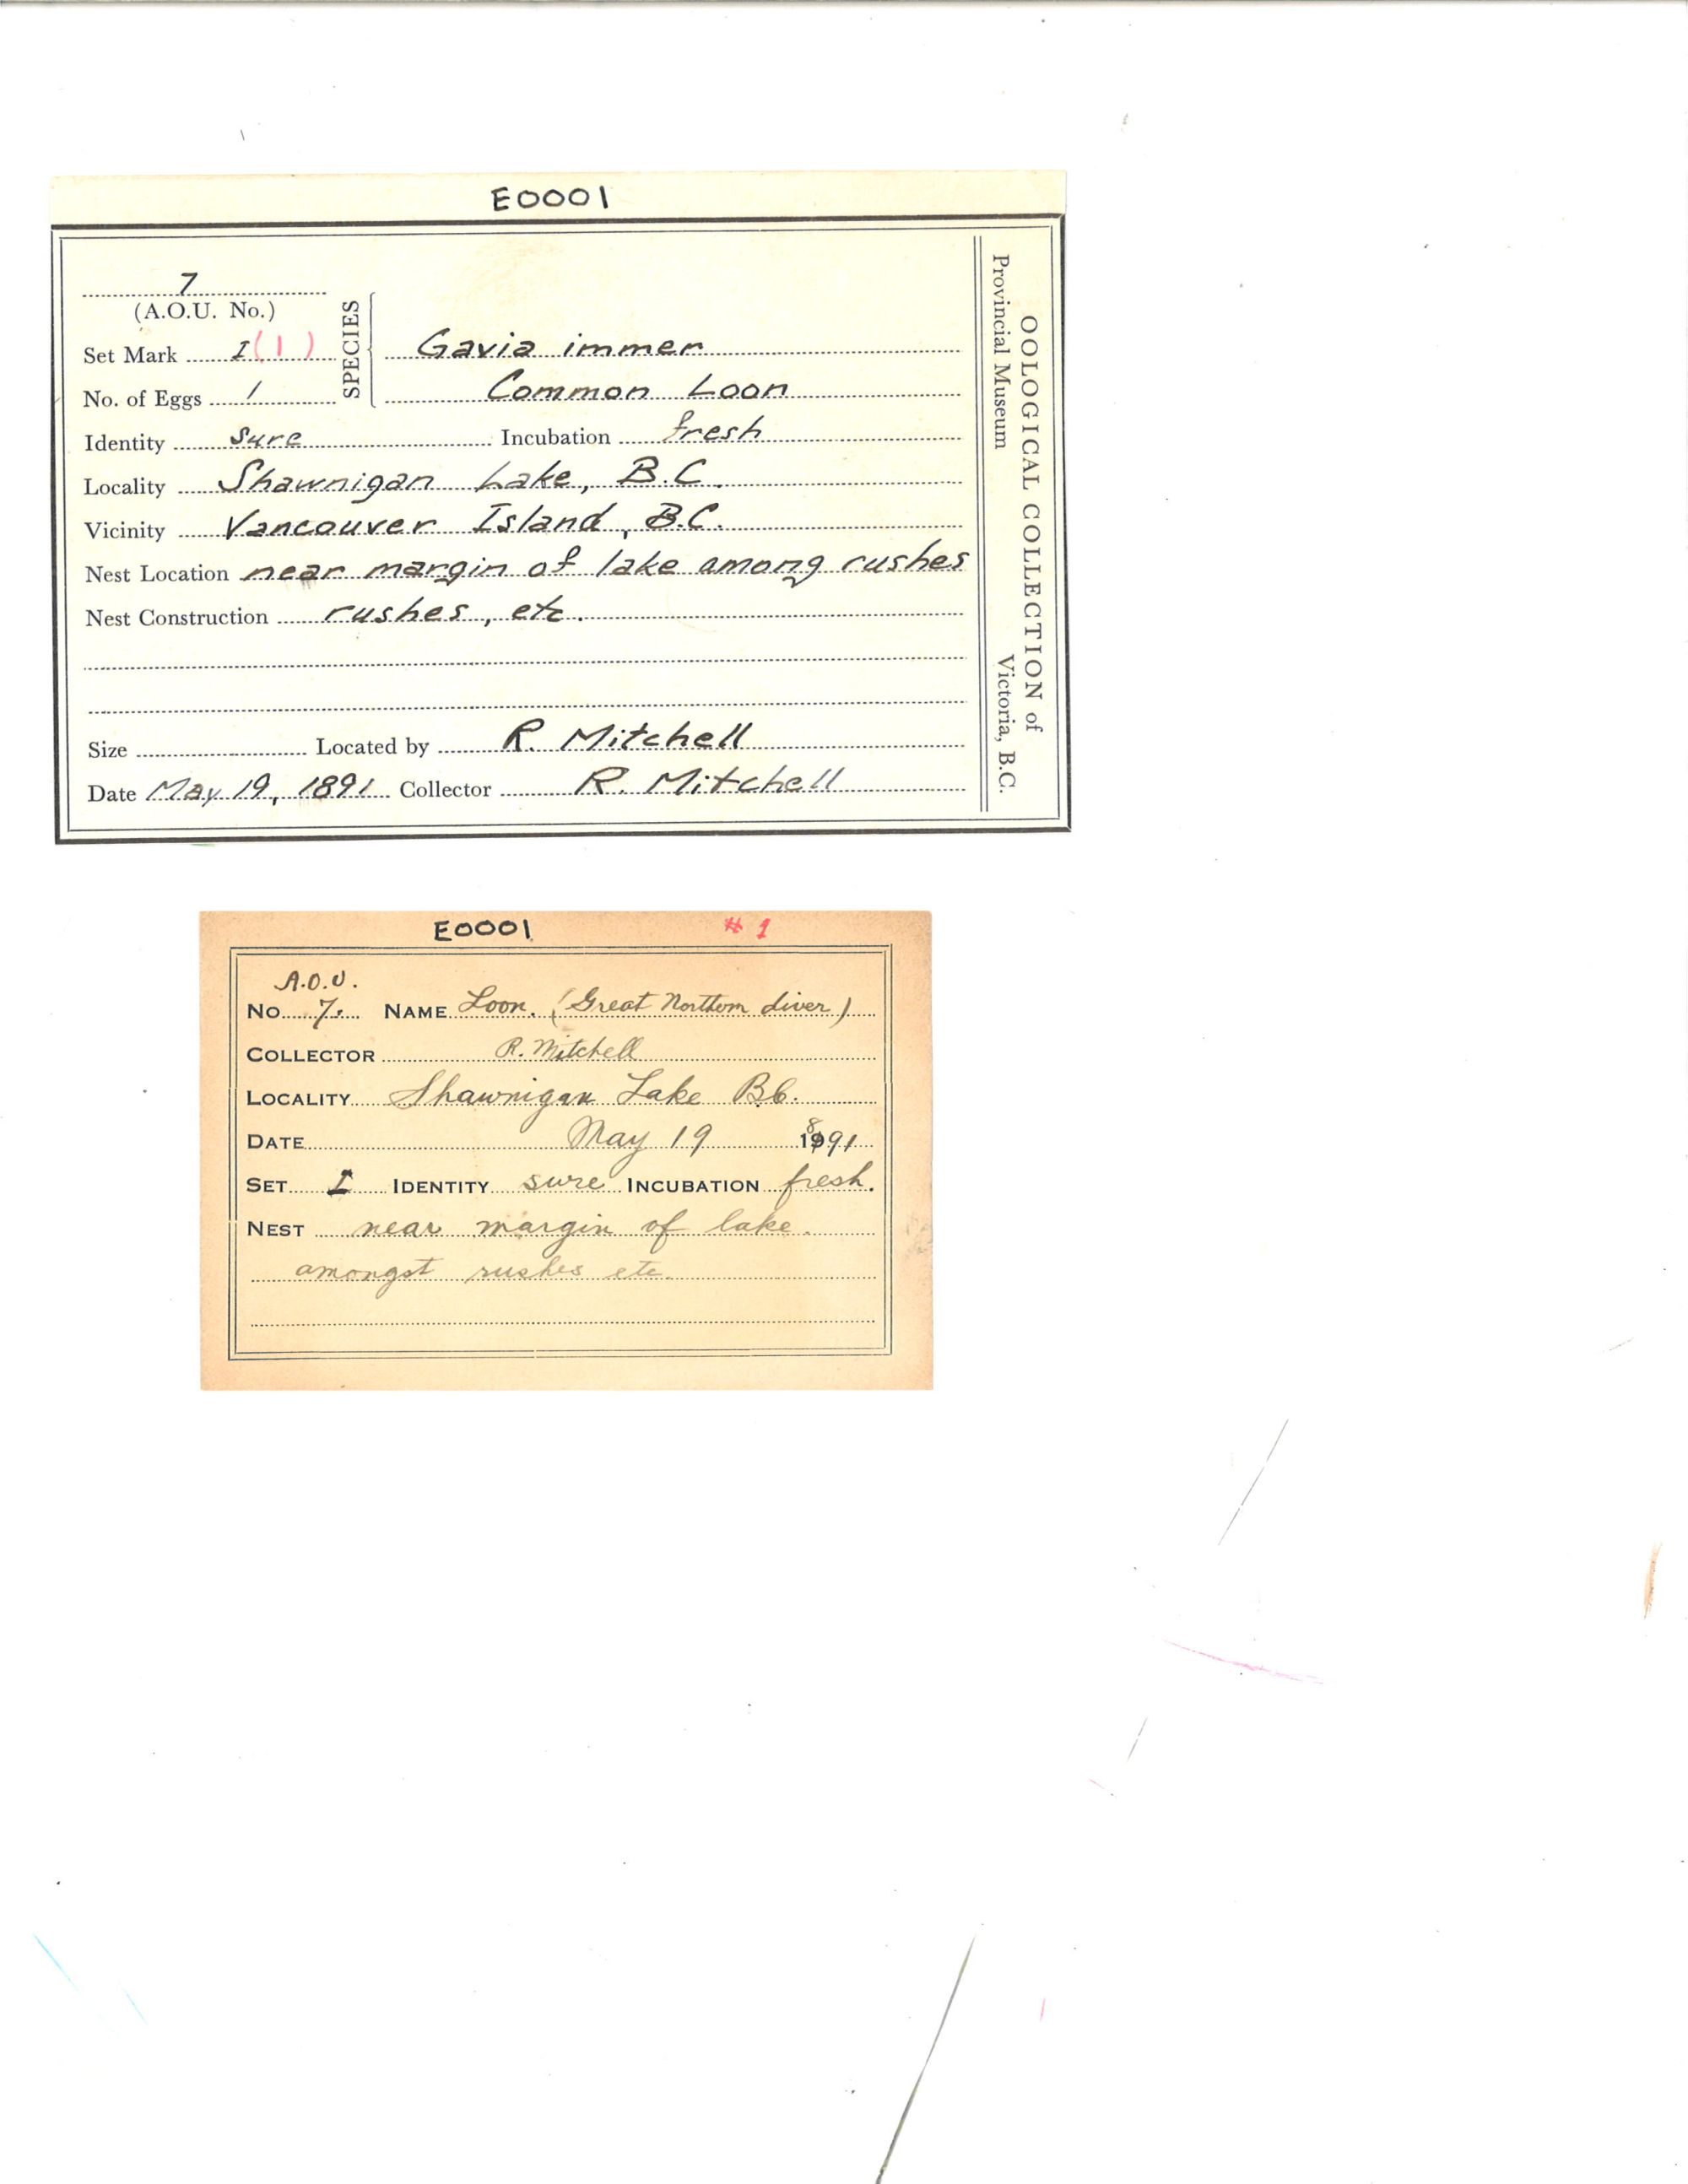 E0001
7
(A.O.U. No.)
SPECIES
Set Mark I (1) Gavia immer
No. of Eggs 1 Common Loon
Identity sure Incubation fresh
Locality Shawnigan Lake, B.C.
Vicinity Vancouver Island, B.C.
Nest Location near margin of lake among rushes
Nest Construction rushes, etc.
Size Located by R. Mitchell
Date May 19, 1891 Collector R. Mitchell
OOLOGICAL COLLECTION of
Provincial Museum Victoria, B.C.
E0001 # 1
A.O.U.
No. 7. NAME Loon. (Great Northern diver)
COLLECTOR R. Mitchell
LOCALITY Shawnigan Lake B.C.
DATE May 19 1891
SET I IDENTITY sure INCUBATION fresh.
NEST near margin of lake.
amongst rushes etc.